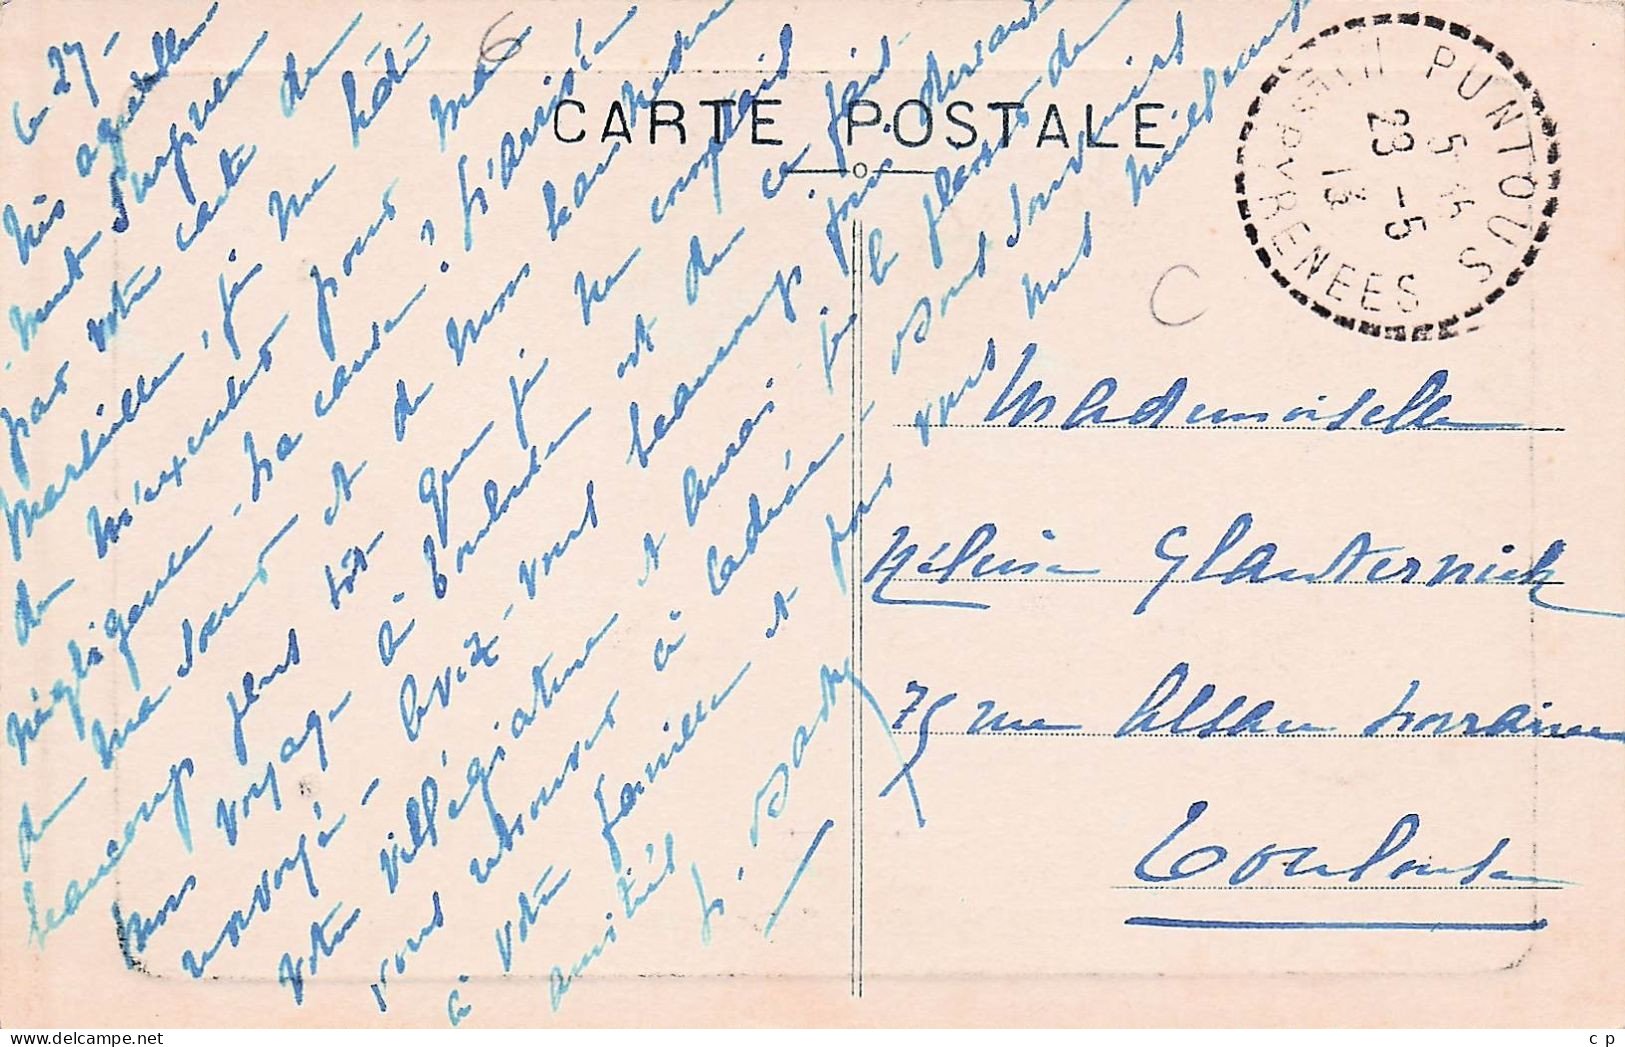 CARTE POSTALE
PUNTOUS
HTES PYRENEES
5 · 15
23 - 5
13
6
C
Le 27 -
Très agréable
ment surprise
par votre carte de
Marseille, je me hâte
de m'excuser pour ma
négligence. La cause ? L'arrivée
de ma sœur et de mon beau
beaucoup plus tôt que je ne comptais
mon voyage à Toulouse est de ce fait
votre villégiature et aurai-je le plaisir de
vous à
à votre famille et pour vous mes meilleures
amitiés
Mademoiselle
Hélène Glanternick
75 rue Alsace Lorraine
Toulouse
c p